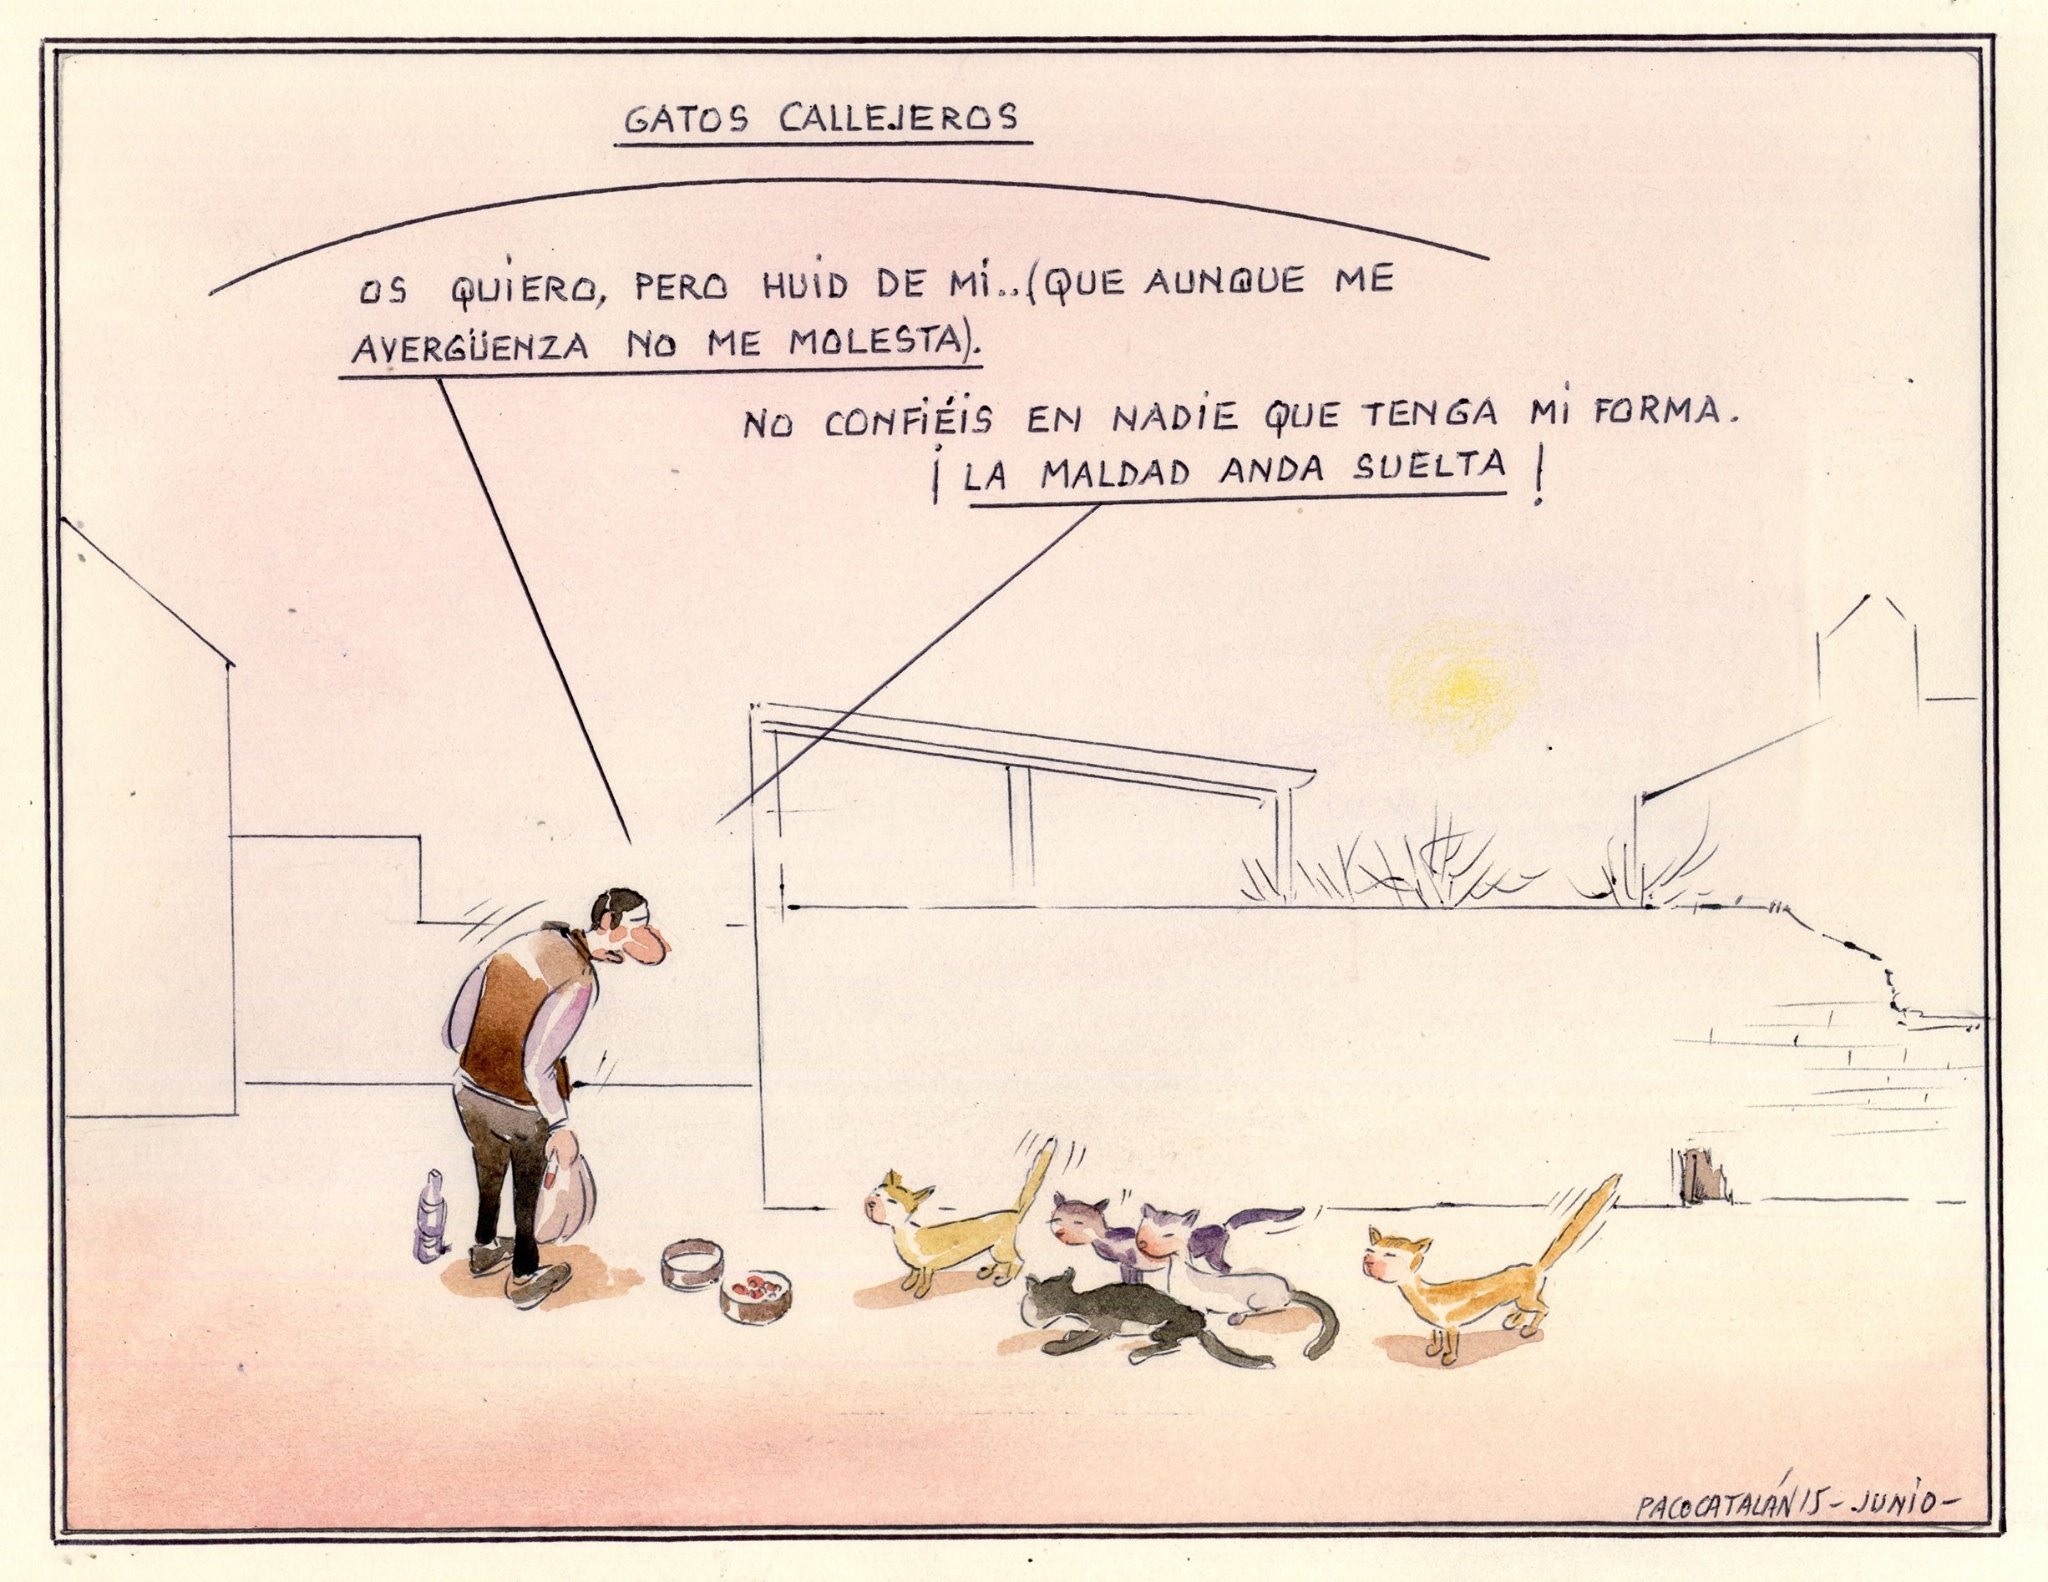 GATOS CALLEJEROS
OS QUIERO, PERO HUID DE MI..(QUE AUNQUE ME
AVERGÜENZA NO ME MOLESTA).
NO CONFIÉIS EN NADIE QUE TENGA MI FORMA.
¡LA MALDAD ANDA SUELTA!
PACOCATALÁN15-JUNIO-